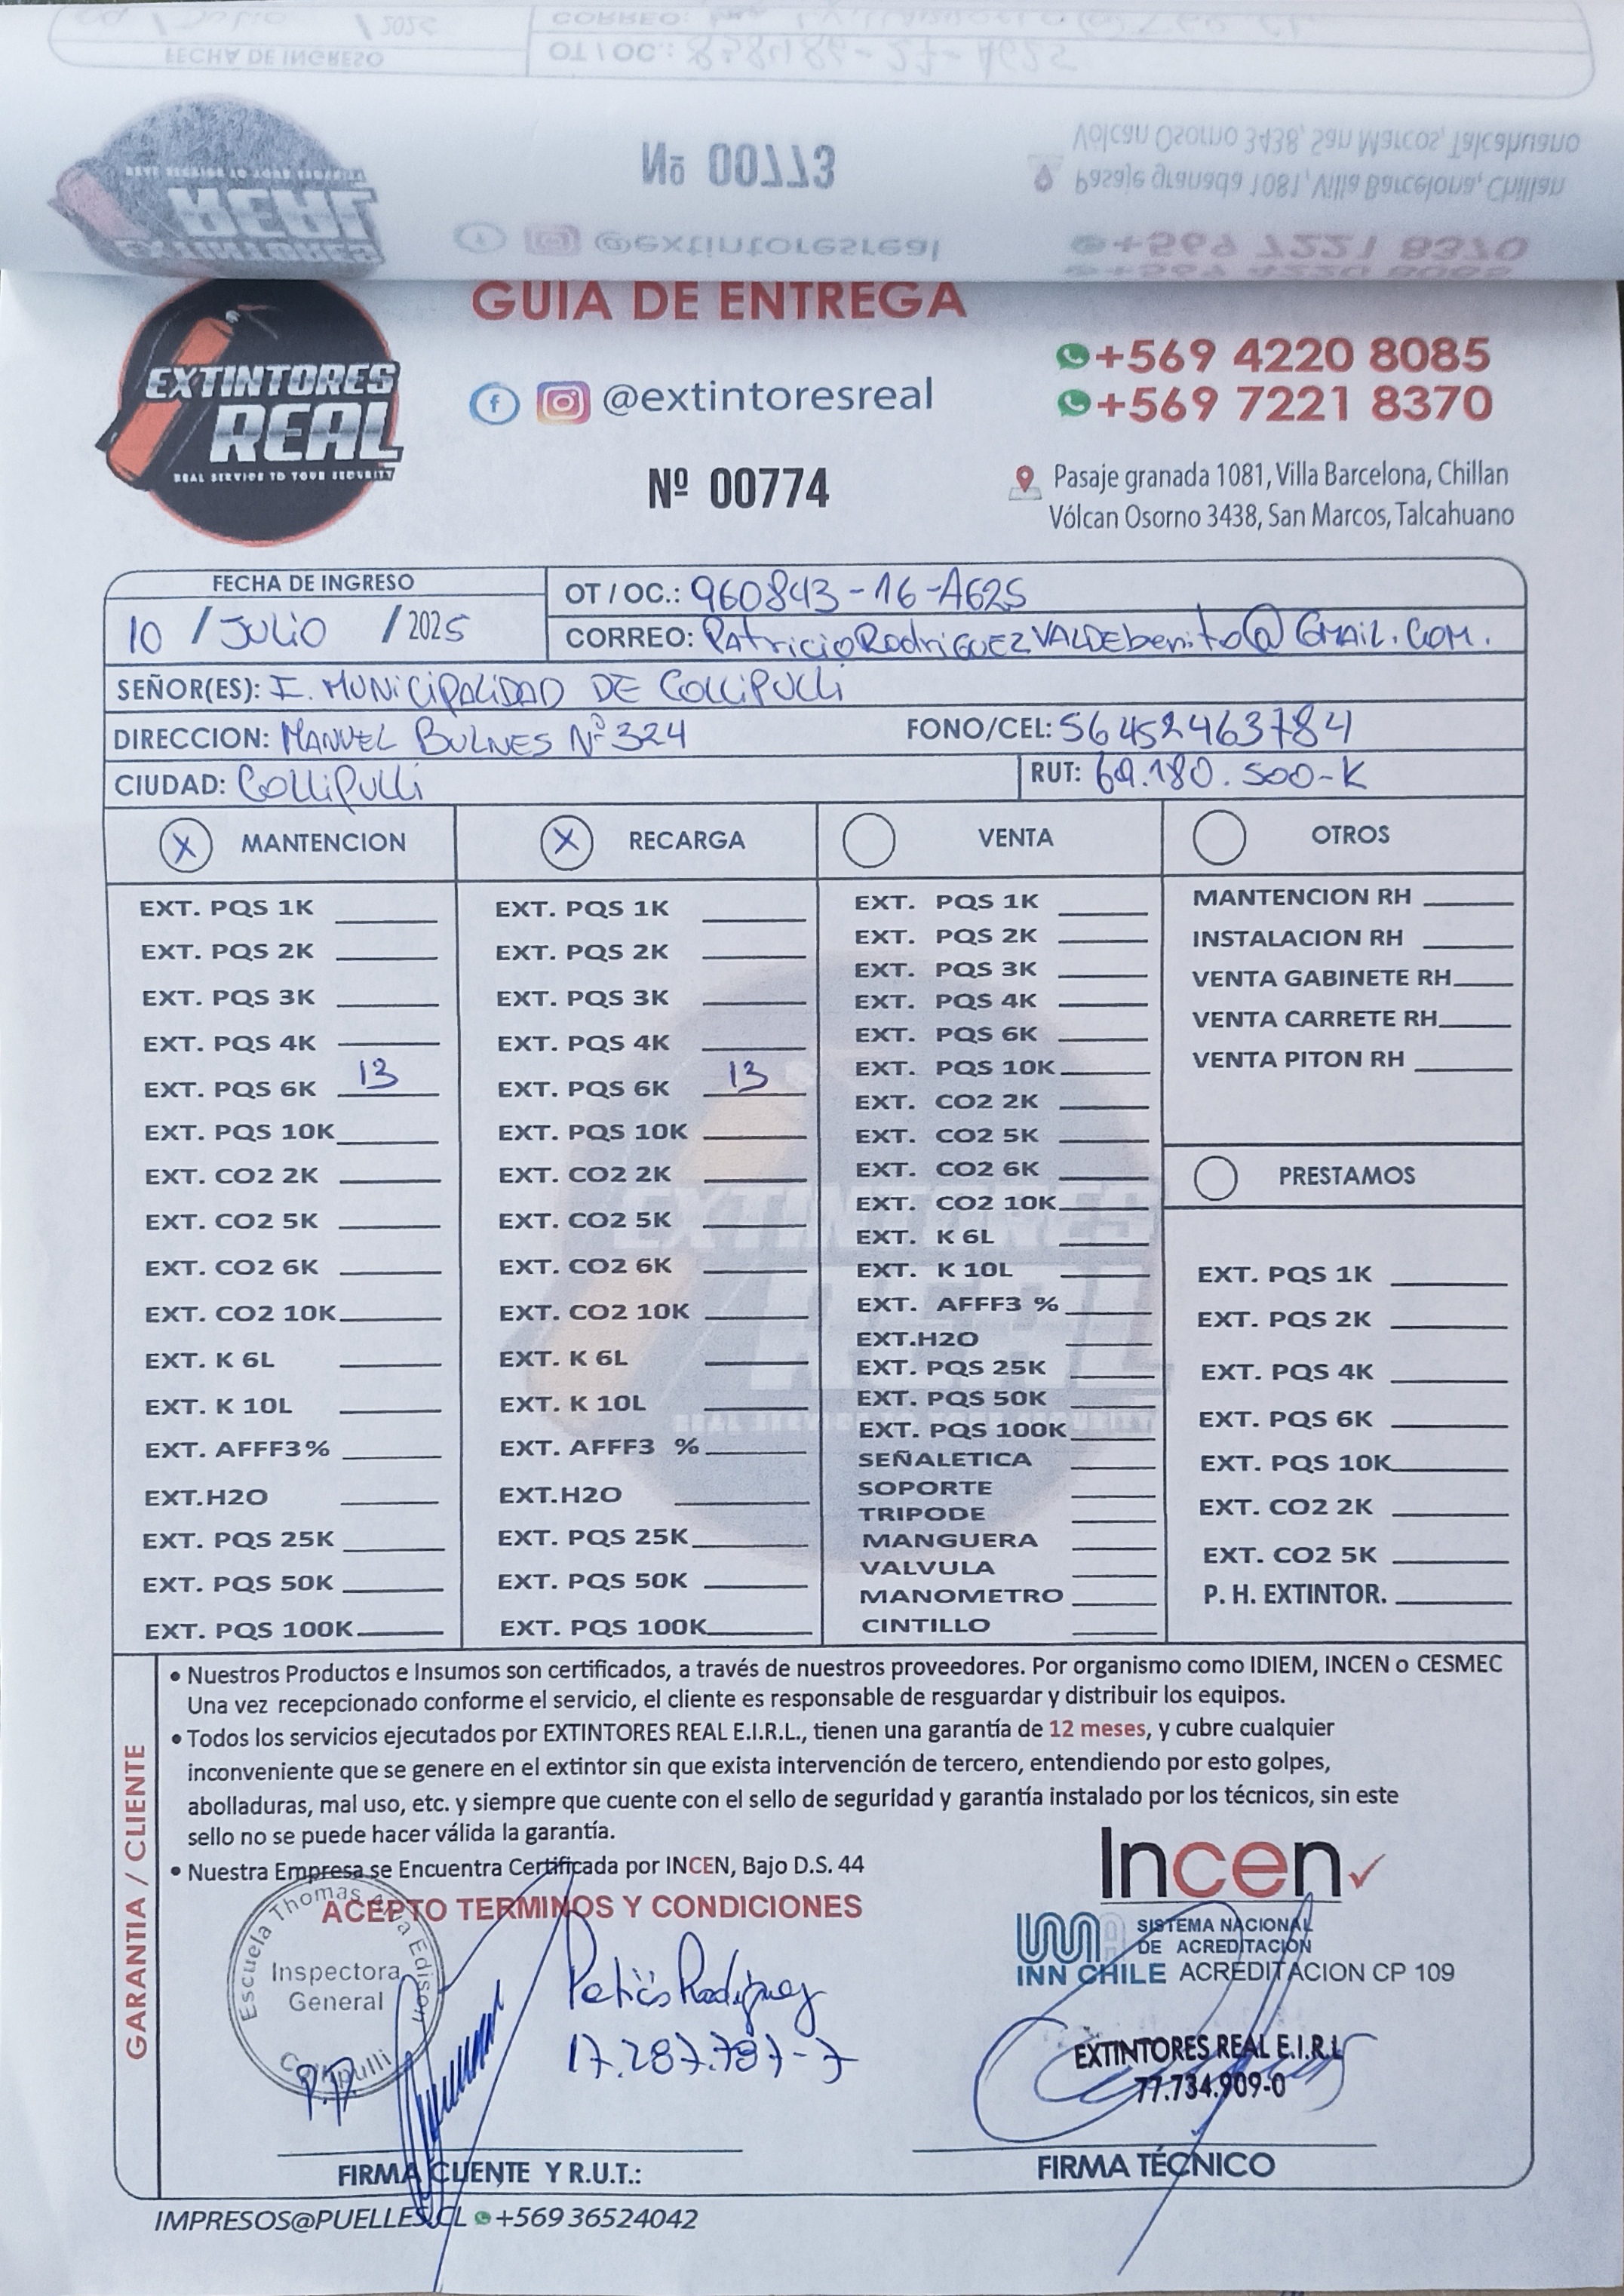 FECHA DE INGRESO
OT / OC.: 858484-27-AG25
/ Julio / 2025
CORREO:
Nº 00773
Volcan Osorno 3438, San Marcos, Talcahuano
Pasaje granada 1081, Villa Barcelona, Chillan
EXTINTORES
REAL
@extintoresreal
+569 7221 8370
+569 4220 8085
GUIA DE ENTREGA
EXTINTORES
REAL
REAL SERVICE TO YOUR SECURITY
@extintoresreal
+569 4220 8085
+569 7221 8370
Nº 00774
Pasaje granada 1081, Villa Barcelona, Chillan
Vólcan Osorno 3438, San Marcos, Talcahuano
FECHA DE INGRESO
10 / JULIO / 2025
OT / OC.: 960843-16-AG25
CORREO: PatricioRodriGUEZVALDEbenito@GMAIL.COM.
SEÑOR(ES): I. MUNICIPALIDAD DE COLLIPULLI
DIRECCION: MANUEL BULNES Nº 324 FONO/CEL: 56452463784
CIUDAD: COLLIPULLI RUT: 69.180.500-K
X MANTENCION
EXT. PQS 1K
EXT. PQS 2K
EXT. PQS 3K
EXT. PQS 4K
EXT. PQS 6K 13
EXT. PQS 10K
EXT. CO2 2K
EXT. CO2 5K
EXT. CO2 6K
EXT. CO2 10K
EXT. K 6L
EXT. K 10L
EXT. AFFF3%
EXT.H2O
EXT. PQS 25K
EXT. PQS 50K
EXT. PQS 100K
X RECARGA
EXT. PQS 1K
EXT. PQS 2K
EXT. PQS 3K
EXT. PQS 4K
EXT. PQS 6K 13
EXT. PQS 10K
EXT. CO2 2K
EXT. CO2 5K
EXT. CO2 6K
EXT. CO2 10K
EXT. K 6L
EXT. K 10L
EXT. AFFF3 %
EXT.H2O
EXT. PQS 25K
EXT. PQS 50K
EXT. PQS 100K
VENTA
EXT. PQS 1K
EXT. PQS 2K
EXT. PQS 3K
EXT. PQS 4K
EXT. PQS 6K
EXT. PQS 10K
EXT. CO2 2K
EXT. CO2 5K
EXT. CO2 6K
EXT. CO2 10K
EXT. K 6L
EXT. K 10L
EXT. AFFF3 %
EXT.H2O
EXT. PQS 25K
EXT. PQS 50K
EXT. PQS 100K
SEÑALETICA
SOPORTE
TRIPODE
MANGUERA
VALVULA
MANOMETRO
CINTILLO
OTROS
MANTENCION RH
INSTALACION RH
VENTA GABINETE RH
VENTA CARRETE RH
VENTA PITON RH
PRESTAMOS
EXT. PQS 1K
EXT. PQS 2K
EXT. PQS 4K
EXT. PQS 6K
EXT. PQS 10K
EXT. CO2 2K
EXT. CO2 5K
P. H. EXTINTOR.
EXTINTORES
REAL
REAL SERVICE TO YOUR SECURITY
GARANTIA / CLIENTE
• Nuestros Productos e Insumos son certificados, a través de nuestros proveedores. Por organismo como IDIEM, INCEN o CESMEC
Una vez recepcionado conforme el servicio, el cliente es responsable de resguardar y distribuir los equipos.
• Todos los servicios ejecutados por EXTINTORES REAL E.I.R.L., tienen una garantía de 12 meses, y cubre cualquier
inconveniente que se genere en el extintor sin que exista intervención de tercero, entendiendo por esto golpes,
abolladuras, mal uso, etc. y siempre que cuente con el sello de seguridad y garantía instalado por los técnicos, sin este
sello no se puede hacer válida la garantía.
• Nuestra Empresa se Encuentra Certificada por INCEN, Bajo D.S. 44
ACEPTO TERMINOS Y CONDICIONES
Incen
INN CHILE
SISTEMA NACIONAL
DE ACREDITACIÓN
ACREDITACION CP 109
Escuela Thomas Alva Edison
Inspectora
General
Collipulli
P.P.
Patricio Rodriguez
17.287.787-7
EXTINTORES REAL E.I.R.L
77.734.909-0
FIRMA CLIENTE Y R.U.T.:
FIRMA TÉCNICO
IMPRESOS@PUELLES.CL +569 36524042